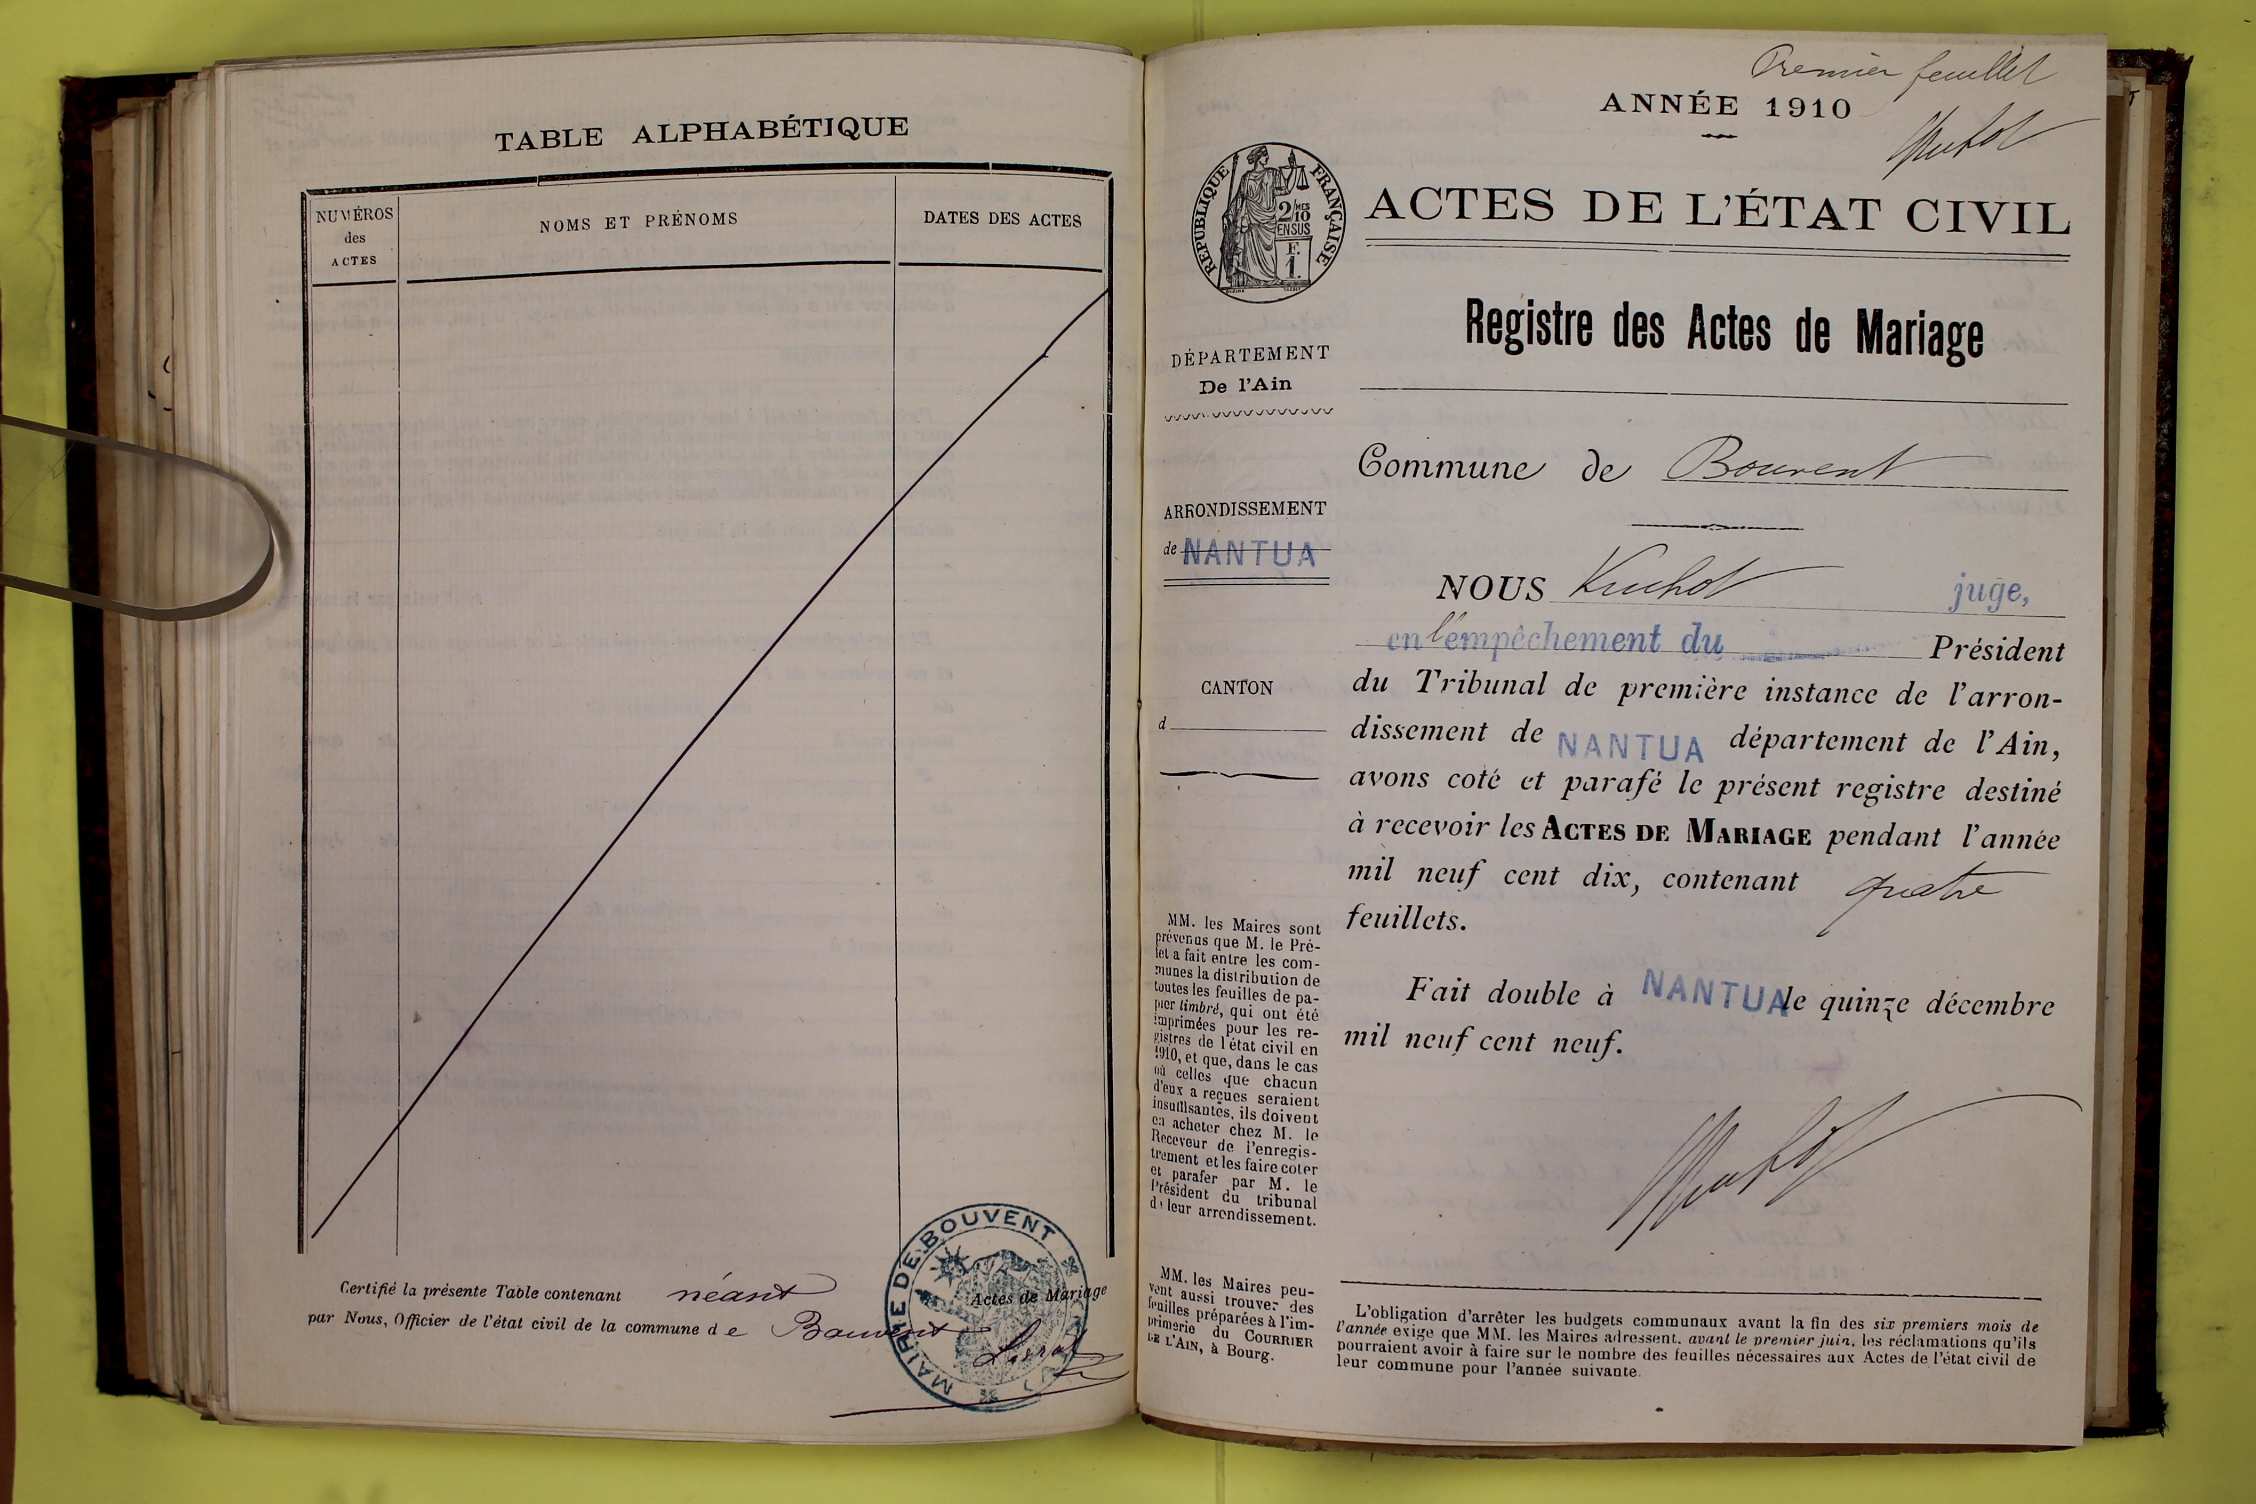 TABLE ALPHABÉTIQUE
NUMÉROS
des
ACTES
NOMS ET PRÉNOMS
DATES DES ACTES
Certifié la présente Table contenant néant Actes de Mariage
par Nous, Officier de l'état civil de la commune de Bouvent
MAIRIE DE BOUVENT
Premier feuillet
ANNÉE 1910
RÉPUBLIQUE FRANÇAISE
2/10
EN SUS
F.
1.
ACTES DE L'ÉTAT CIVIL
Registre des Actes de Mariage
DÉPARTEMENT
De l'Ain
ARRONDISSEMENT
de NANTUA
CANTON
d
MM. les Maires sont
prévenus que M. le Pré-
fet a fait entre les com-
munes la distribution de
toutes les feuilles de pa-
pier timbré, qui ont été
imprimées pour les re-
gistres de l'état civil en
1910, et que, dans le cas
où celles que chacun
d'eux a reçues seraient
insuffisantes, ils doivent
en acheter chez M. le
Receveur de l'enregis-
trement et les faire coter
et parafer par M. le
Président du tribunal
de leur arrondissement.
MM. les Maires peu-
vent aussi trouver des
feuilles préparées à l'im-
primerie du COURRIER
DE L'AIN, à Bourg.
Commune de Bouvent
NOUS juge,
en l'empêchement du Président
du Tribunal de première instance de l'arron-
dissement de NANTUA département de l'Ain,
avons coté et parafé le présent registre destiné
à recevoir les ACTES DE MARIAGE pendant l'année
mil neuf cent dix, contenant quatre
feuillets.
Fait double à NANTUA le quinze décembre
mil neuf cent neuf.
L'obligation d'arrêter les budgets communaux avant la fin des six premiers mois de
l'année exige que MM. les Maires adressent, avant le premier juin, les réclamations qu'ils
pourraient avoir à faire sur le nombre des feuilles nécessaires aux Actes de l'état civil de
leur commune pour l'année suivante.